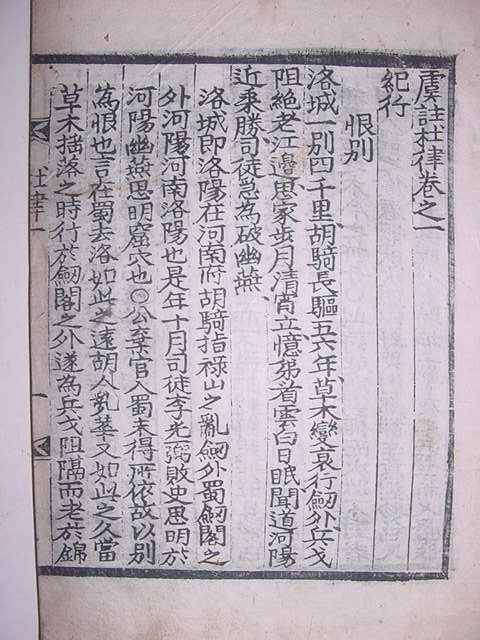 虞註杜律卷之一
紀行
恨別
洛城一別四千里胡騎長驅五六年草木變衰行劒外兵戈
阻絕老江邊思家步月清宵立憶弟看雲白日眠聞道河陽
近乘勝司徒急為破幽燕
洛城即洛陽在河南府胡騎指祿山之亂劒外蜀劒閣之
外河陽河南洛陽也是年十月司徒李光弼敗史思明於
河陽幽燕思明窟穴也○公棄官入蜀未得所依故以別
為恨也言在蜀去洛如此之遠胡人亂華又如此之久當
草木揺落之時行於劒閣之外遂為兵戈阻隔而老於錦
杜律一